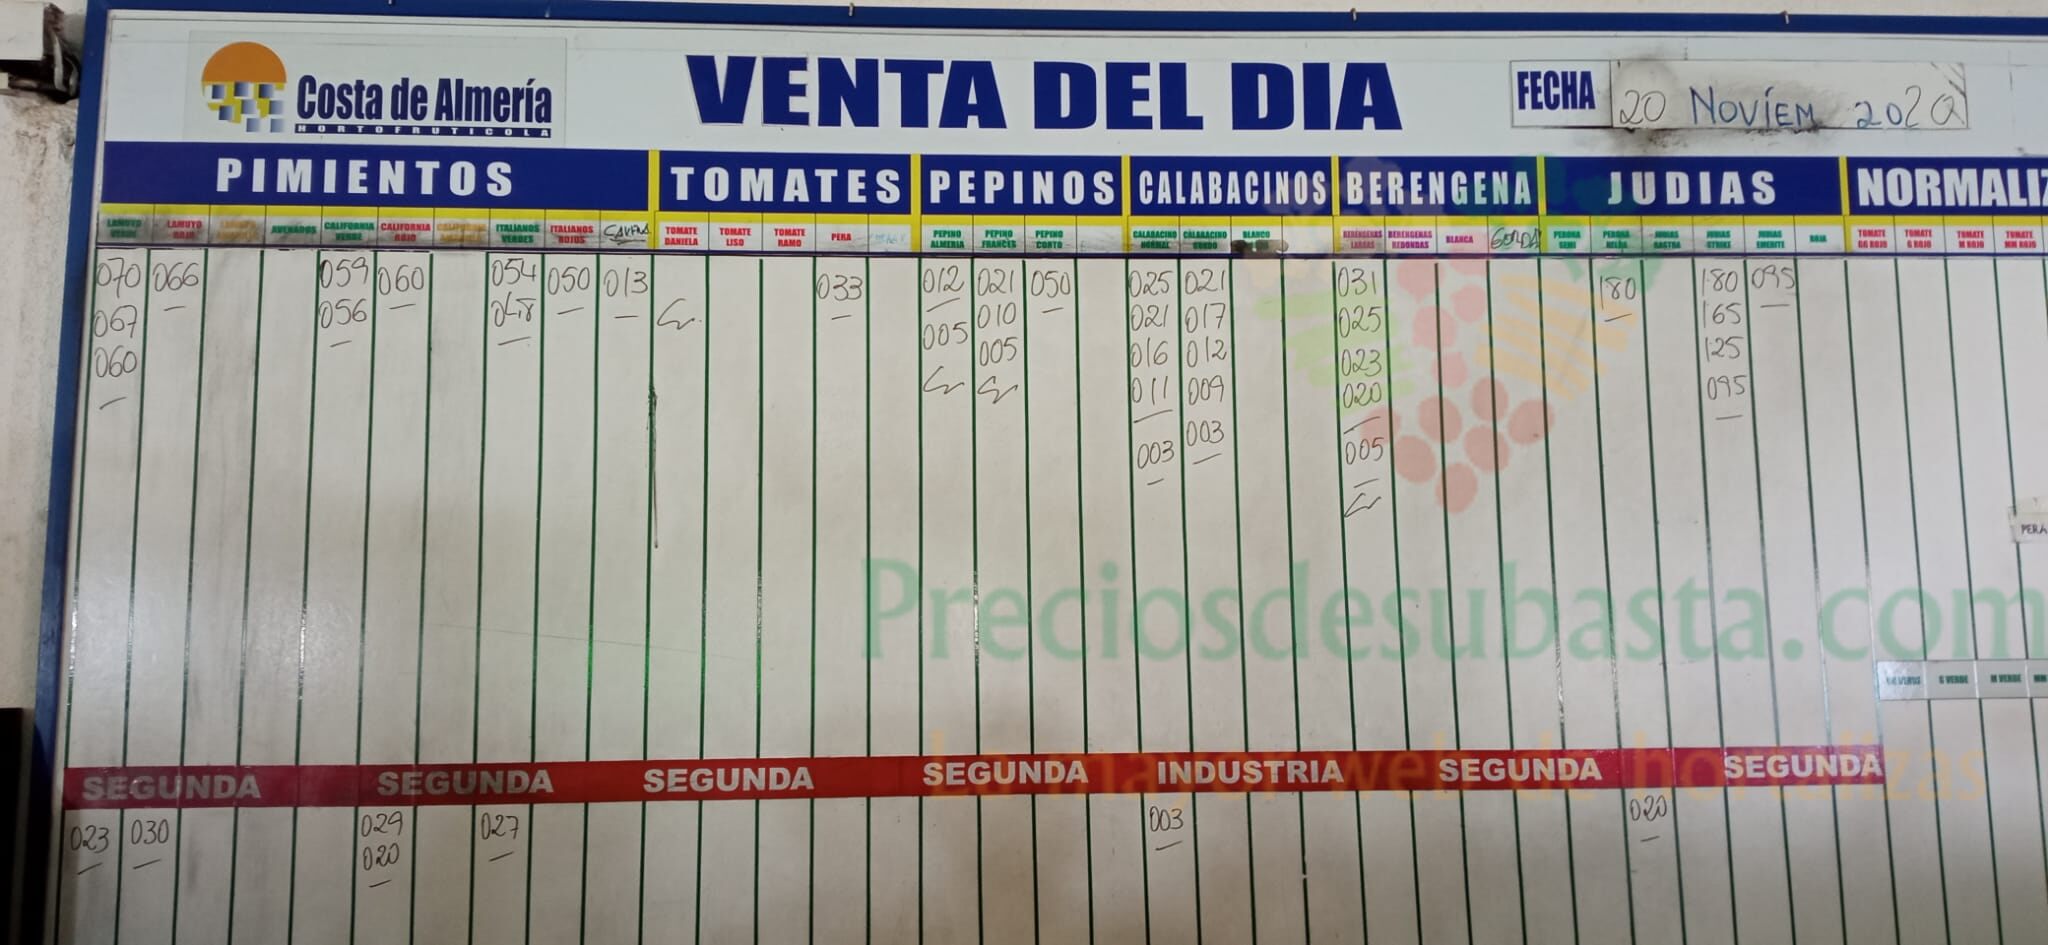 Costa de Almería
HORTOFRUTICOLA
VENTA DEL DIA
FECHA 20 NOVIEM 2020
PIMIENTOS TOMATES PEPINOS CALABACINOS BERENGENA JUDIAS NORMALIZ
LAMUYO VERDE LAMUYO ROJO CALIFORNIA VERDE CALIFORNIA ROJO ITALIANOS VERDES ITALIANOS ROJOS TOMATE DANIELA TOMATE LISO TOMATE RAMO PERA PEPINO ALMERIA PEPINO FRANCES PEPINO CORTO CALABACINO NORMAL CALABACINO GORDO BLANCO BERENGENAS LARGAS BERENGENAS REDONDAS BLANCA GORDA PERONA SEMI PERONA JUDIAS RASTRA JUDIAS STRIKE JUDIAS EMERITE ROJA TOMATE GG ROJO TOMATE G ROJO TOMATE M ROJO TOMATE MM ROJO
070 066 059 060 054 050 013 033 012 021 050 025 021 031 180 180 095
067 056 048 005 010 021 017 025 165
060 005 016 012 023 125
011 009 020 095
003 003 005
PERA
Preciosdesubasta.com
G VERDE M VERDE MM
La mayor web de hortalizas
SEGUNDA SEGUNDA SEGUNDA SEGUNDA INDUSTRIA SEGUNDA SEGUNDA
023 030 029 027 003 020
020